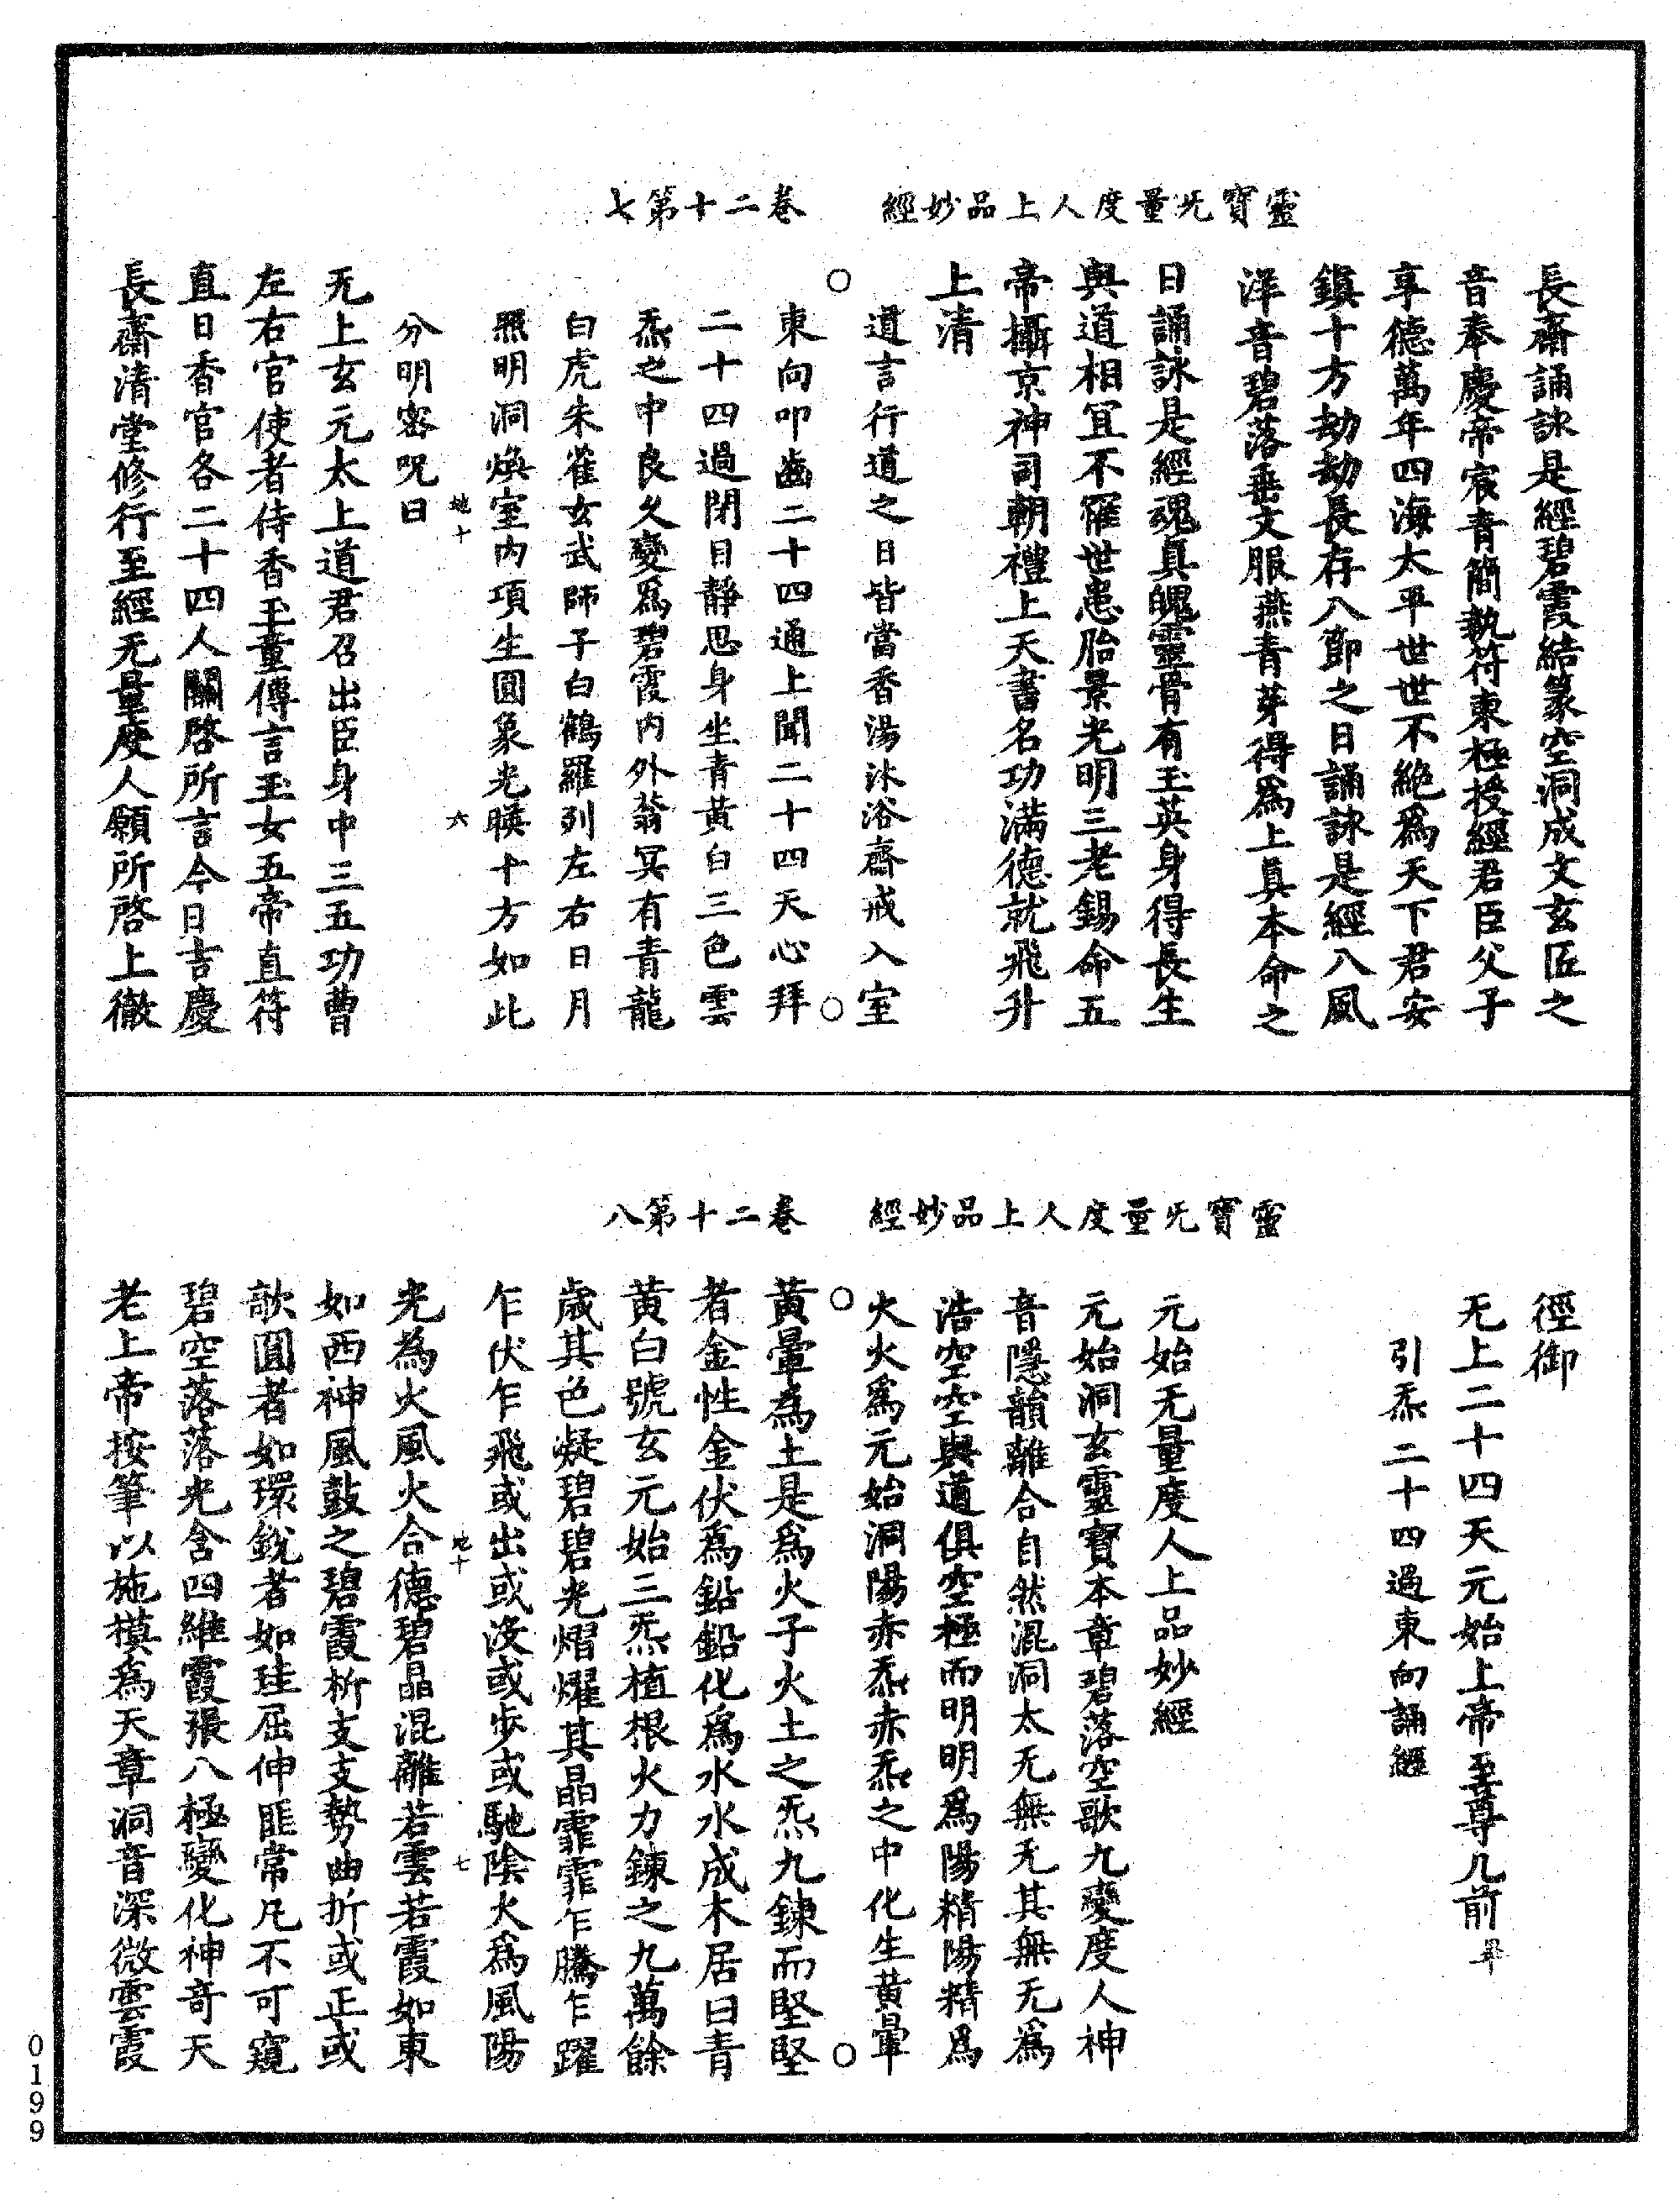 靈寶无量度人上品妙經　卷二十第七
長齋誦詠是經碧霞結篆空洞成文玄匠之
音奉慶帝宸青簡執符東極授經君臣父子
享德萬年四海太平世世不絕爲天下君安
鎮十方劫劫長存八節之日誦詠是經八風
洋音碧落垂文服燕青芽得爲上真本命之
日誦詠是經魂真魄靈骨有玉英身得長生
與道相冝不罹世患胎景光明三老錫命五
帝攝京神司朝禮上天書名功滿德就飛升
上清
道言行道之日皆當香湯沐浴齋戒入室
東向叩齒二十四通上聞二十四天心拜
二十四過閉目靜思身坐青黃白三色雲
炁之中良久變爲碧霞內外蓊冥有青龍
白虎朱雀玄武師子白鶴羅列左右日月
照明洞煥室內項生圓象光暎十方如此
地十　六
分明密呪曰
无上玄元太上道君召出臣身中三五功曹
左右官使者侍香玉童傳言玉女五帝直符
直日香官各二十四人關啓所言今日吉慶
長齋清堂修行至經无量度人願所啓上徹
靈寶无量度人上品妙經　卷二十第八
徑御
无上二十四天元始上帝至尊几前 畢
引炁二十四過東向誦經
元始无量度人上品妙經
元始洞玄靈寶本章碧落空歌九變度人神
音隱韻離合自然混洞太无無无其無无爲
浩空空與道俱空極而明明爲陽精陽精爲
火火爲元始洞陽赤炁赤炁之中化生黃暈
黃暈為土是爲火子火土之炁九鍊而堅堅
者金性金伏爲鉛鉛化爲水水成木居曰青
黃白號玄元始三炁植根火力鍊之九萬餘
歲其色凝碧碧光熠燿其晶霏霏乍騰乍躍
乍伏乍飛或出或沒或步或馳陰火爲風陽
地十　七
光為火風火合德碧晶混離若雲若霞如東
如西神風鼓之碧霞析支支勢曲折或正或
欹圓者如環銳者如珪屈伸匪常凡不可窺
碧空落落光含四維霞張八極變化神奇天
老上帝按筆以施模爲天章洞音深微雲霞
0199